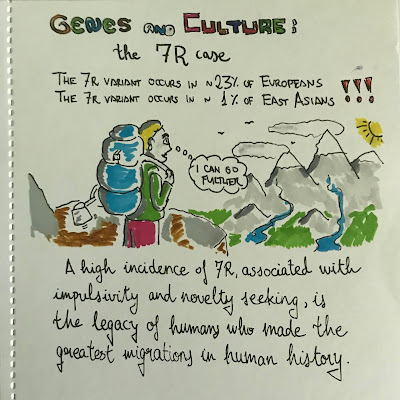 GENES AND CULTURE:
the 7R case
THE 7R VARIANT OCCURS IN ~ 23% OF EUROPEANS
THE 7R VARIANT OCCURS IN ~ 1% OF EAST ASIANS !!!
I CAN GO
FURTHER
A high incidence of 7R, associated with
impulsivity and novelty seeking, is
the legacy of humans who made the
greatest migrations in human history.